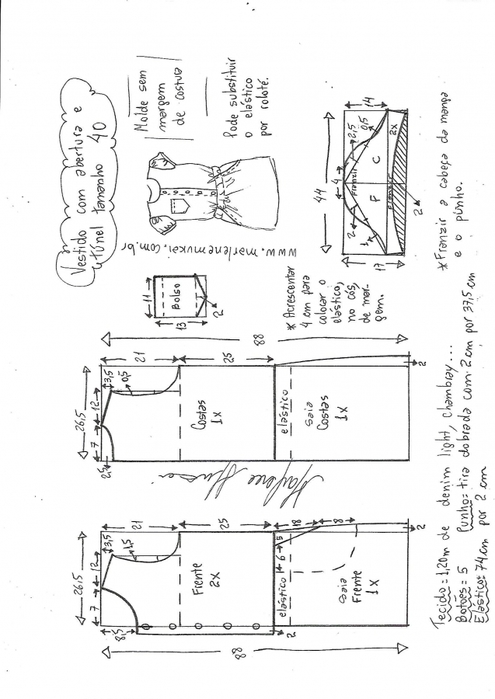 Vestido com abertura e
túnel tamanho 40
Molde sem
margem
de costura
Pode substituir
o elástico
por roloté.
www.marlenemukai.com.br
44
4
2
2,5
0,5
1
Franzir
Franzir
F
C
2x
14
17
2
* Franzir a cabeça da manga
e o punho.
11
Bolso
13
2
* Acrescentar
4 cm para
colocar o
elástico,
no cós,
de mar-
gem.
88
26,5
7
12
3,5
0,5
2,5
21
25
Costas
1x
elástico
Saia
Costas
1x
2
Marlene Mukai
26,5
7
12
3,5
1,5
8,5
21
25
Frente
2x
2
elástico
6
5
18
18
Saia
Frente
1x
2
88
Tecido = 1,20m de denim light, chambray...
Botões = 5 Punho = tira dobrada com 2 cm por 37,5 cm
Elástico = 74 cm por 2 cm